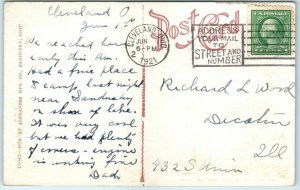 Cleveland O
Jun
We reached here
early this Am.
Had a fine place
to camp last night
near Sandusky
on shore of lake.
It was very cool
but we had plenty
of covers - engine
is working fine
Dad
Post Card
CLEVELAND, OHIO
JUN
2
6-PM
1921
ADDRESS
YOUR MAIL
TO
STREET AND
NUMBER
Richard L Wood
Decatur
Ill
432 S